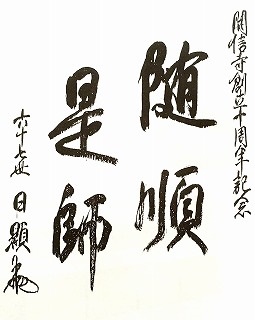 開信寺創立十周年記念
随順
是師
六十七世 日顕